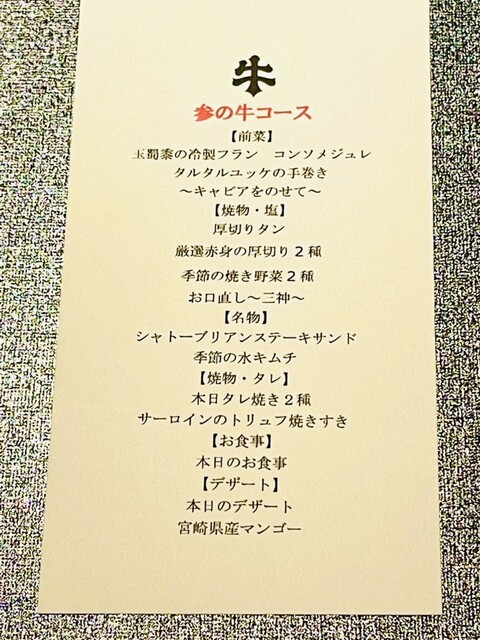 牛
参の牛コース
【前菜】
玉蜀黍の冷製フラン　コンソメジュレ
タルタルユッケの手巻き
～キャビアをのせて～
【焼物・塩】
厚切りタン
厳選赤身の厚切り２種
季節の焼き野菜２種
お口直し～三神～
【名物】
シャトーブリアンステーキサンド
季節の水キムチ
【焼物・タレ】
本日タレ焼き２種
サーロインのトリュフ焼きすき
【お食事】
本日のお食事
【デザート】
本日のデザート
宮崎県産マンゴー